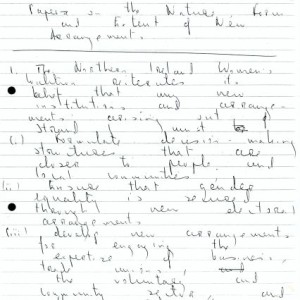 Papers on the Nature, Form
and Extent of New
Arrangements.
1. The Northern Ireland Women's
Coalition reiterates its
belief that any new
institutions and arrange-
ments arising out of
Strand 1 must
(i) Formulate decision-making
structures that are
closer to people and
local communities.
(ii) Ensure that gender
equality is secured
through new electoral
arrangements
(iii) develop new arrangements
for engaging the
expertise of business,
trade unions,
the voluntary and
community sector, and